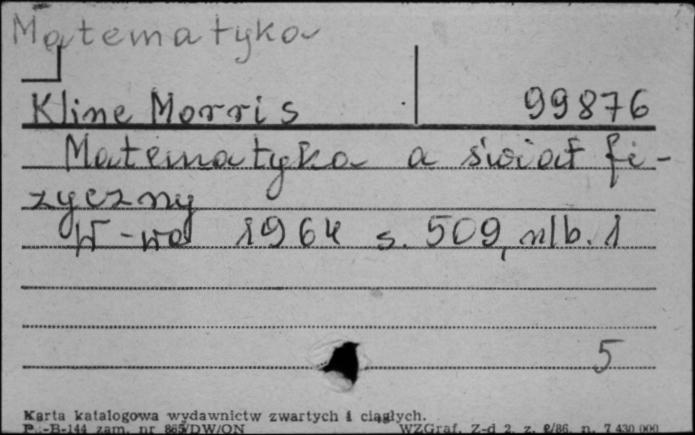 Matematyka
Kline Morris 99876
Matematyka a świat fi-
zyczny
W-wa 1964 s. 509, nlb. 1
5
Karta katalogowa wydawnictw zwartych i ciągłych.
-B-144 zam. nr 865/DW/ON WZGraf. Z-d 2, z. 2/86, n. 7 430 000